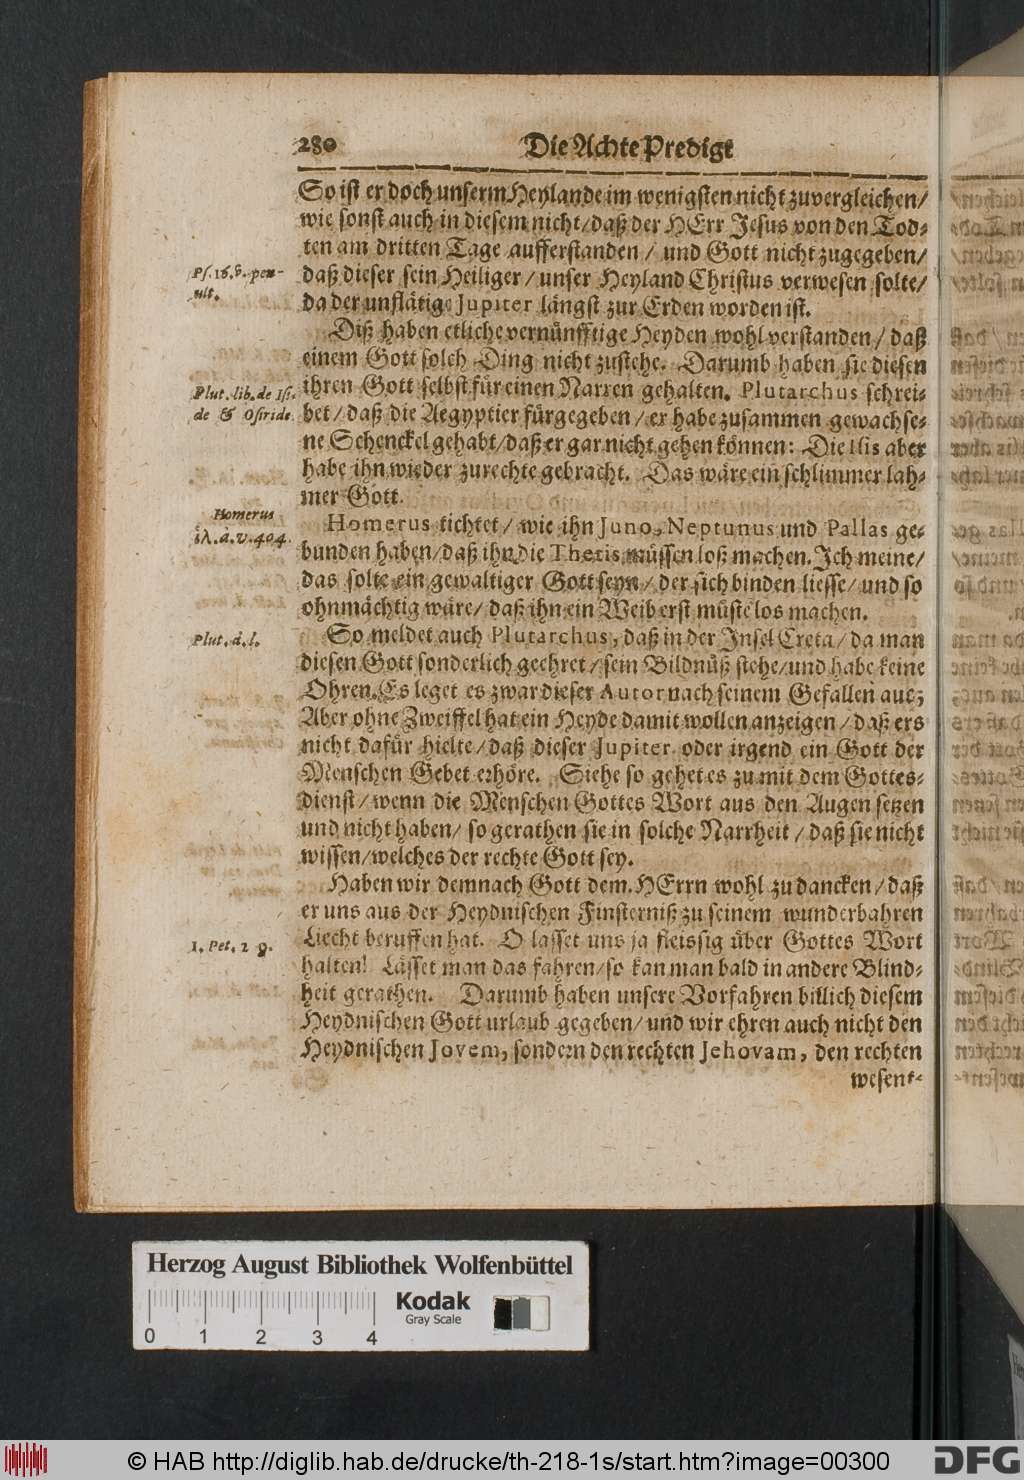 280 Die Achte Predigt
So ist er doch unserm Heylande im wenigsten nicht zuvergleichen/
wie sonst auch in diesem nicht/daß der HErr Jesus von den Tod-
ten am dritten Tage aufferstanden/ und Gott nicht zugegeben/
Ps. 16. v. pen-
ult.
daß dieser sein Heiliger/ unser Heyland Christus verwesen solte/
da der unflätige Jupiter längst zur Erden worden ist.
Diß haben etliche vernünfftige Heyden wohl verstanden/ daß
einem Gott solch Ding nicht zustehe. Darumb haben sie diesen
Plut. lib. de Isi-
de & Osiride.
ihren Gott selbst für einen Narren gehalten. Plutarchus schrei-
bet/ daß die Aegyptier fürgegeben/ er habe zusammen gewachse-
ne Schenckel gehabt/daß er gar nicht gehen können: Die Isis aber
habe ihn wieder zurechte gebracht. Das wäre ein schlimmer lah-
mer Gott.
Homerus
ἰλ. ά. v. 404.
Homerus tichtet/ wie ihn Juno, Neptunus und Pallas ge-
bunden haben/daß ihn die Thetis müssen loß machen. Ich meine/
das solte ein gewaltiger Gott seyn/ der sich binden liesse/ und so
ohnmächtig wäre/ daß ihn ein Weib erst müste los machen.
Plut. d. l.
So meldet auch Plutarchus, daß in der Insel Creta/ da man
diesen Gott sonderlich geehret/ sein Bildnüß stehe/und habe keine
Ohren. Es leget es zwar dieser Autor nach seinem Gefallen aus;
Aber ohne Zweiffel hat ein Heyde damit wollen anzeigen/ daß ers
nicht dafür hielte/ daß dieser Jupiter oder irgend ein Gott der
Menschen Gebet erhöre. Siehe so gehet es zu mit dem Gottes-
dienst/ wenn die Menschen Gottes Wort aus den Augen setzen
und nicht haben/ so gerathen sie in solche Narrheit/ daß sie nicht
wissen/welches der rechte Gott sey.
Haben wir demnach Gott dem HErrn wohl zu dancken/ daß
er uns aus der Heydnischen Finsterniß zu seinem wunderbahren
1. Pet. 2 9.
Liecht beruffen hat. O lasset uns ja fleissig über Gottes Wort
halten! Lässet man das fahren/so kan man bald in andere Blind-
heit gerathen. Darumb haben unsere Vorfahren billich diesem
Heydnischen Gott urlaub gegeben/ und wir ehren auch nicht den
Heydnischen Jovem, sondern den rechten Jehovam, den rechten
wesent-
Herzog August Bibliothek Wolfenbüttel
Kodak
Gray Scale
0 1 2 3 4
© HAB http://diglib.hab.de/drucke/th-218-1s/start.htm?image=00300
DFG